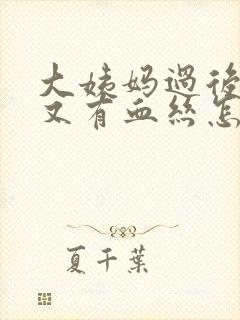 大姨妈過後
又有血丝怎
夏千葉